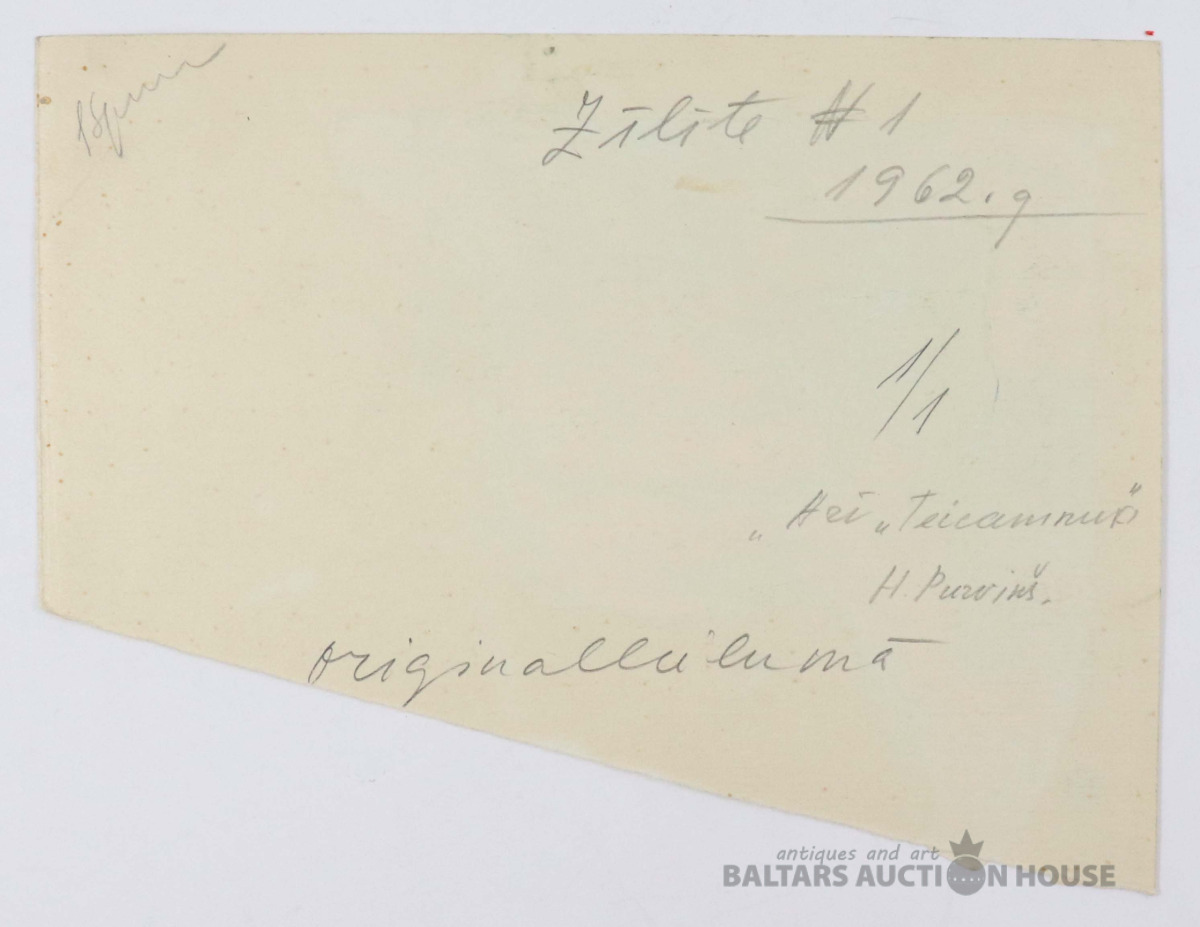 Zīlīte # 1
1962. g
1/1
H. Purviņš.
originallielumā
antiques and art
BALTARS AUCTION HOUSE